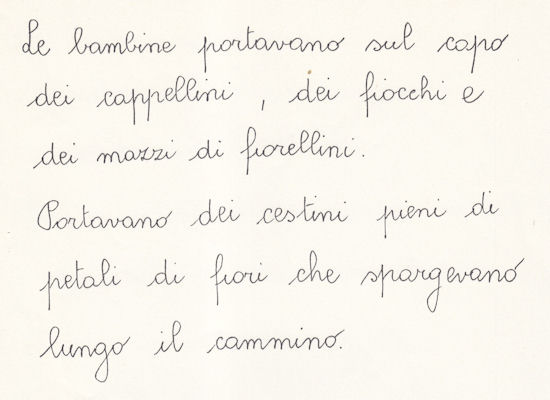 Le bambine portavano sul capo
dei cappellini , dei fiocchi e
dei mazzi di fiorellini.
Portavano dei cestini pieni di
petali di fiori che spargevano
lungo il cammino.